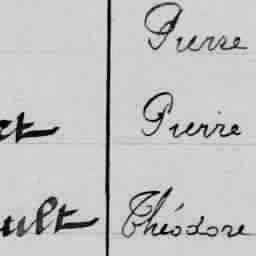 Pierre
ct Pierre
ault Théodore